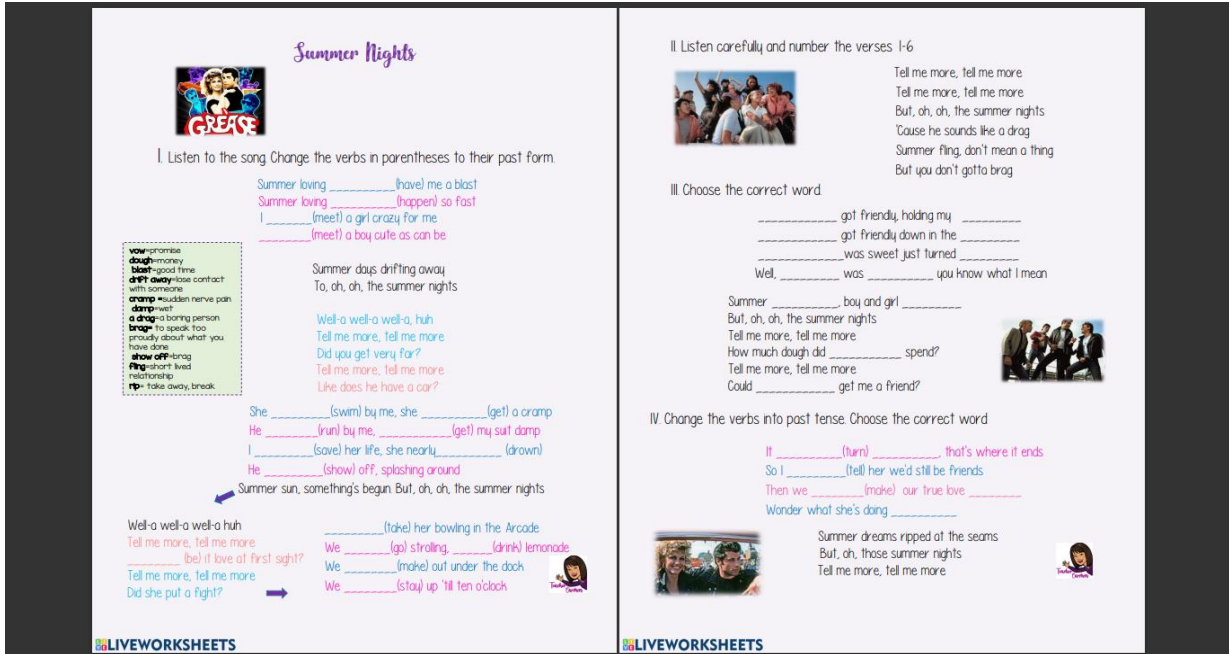 Summer Nights
GREASE
I. Listen to the song. Change the verbs in parentheses to their past form.
Summer loving __________(have) me a blast
Summer loving __________(happen) so fast
I _______(meet) a girl crazy for me
________(meet) a boy cute as can be
vow=promise
dough=money
blast=good time
drift away=lose contact
with someone
cramp =sudden nerve pain
damp=wet
a drag=a boring person
brag= to speak too
proudly about what you
have done
show off=brag
fling=short lived
relationship
rip= take away, break
Summer days drifting away
To, oh, oh, the summer nights
Well-a well-a well-a, huh
Tell me more, tell me more
Did you get very far?
Tell me more, tell me more
Like does he have a car?
She _________(swim) by me, she __________(get) a cramp
He ________(run) by me, ___________(get) my suit damp
I _________(save) her life, she nearly__________ (drown)
He _________(show) off, splashing around
Summer sun, something's begun. But, oh, oh, the summer nights
Well-a well-a well-a huh
Tell me more, tell me more
________ (be) it love at first sight?
Tell me more, tell me more
Did she put a fight?
_________(take) her bowling in the Arcade
We _______(go) strolling, ______(drink) lemonade
We ________(make) out under the dock
We ________(stay) up 'till ten o'clock
LIVEWORKSHEETS
II. Listen carefully and number the verses 1-6
Tell me more, tell me more
Tell me more, tell me more
But, oh, oh, the summer nights
'Cause he sounds like a drag
Summer fling, don't mean a thing
But you don't gotta brag
III. Choose the correct word.
____________ got friendly, holding my _________
____________ got friendly down in the _________
_____________was sweet just turned _________
Well, _________ was __________ you know what I mean
Summer __________, boy and girl _________
But, oh, oh, the summer nights
Tell me more, tell me more
How much dough did ___________ spend?
Tell me more, tell me more
Could ____________ get me a friend?
IV. Change the verbs into past tense. Choose the correct word
It __________(turn) __________, that's where it ends
So I _________(tell) her we'd still be friends
Then we ________(make) our true love ________
Wonder what she's doing __________
Summer dreams ripped at the seams
But, oh, those summer nights
Tell me more, tell me more
LIVEWORKSHEETS